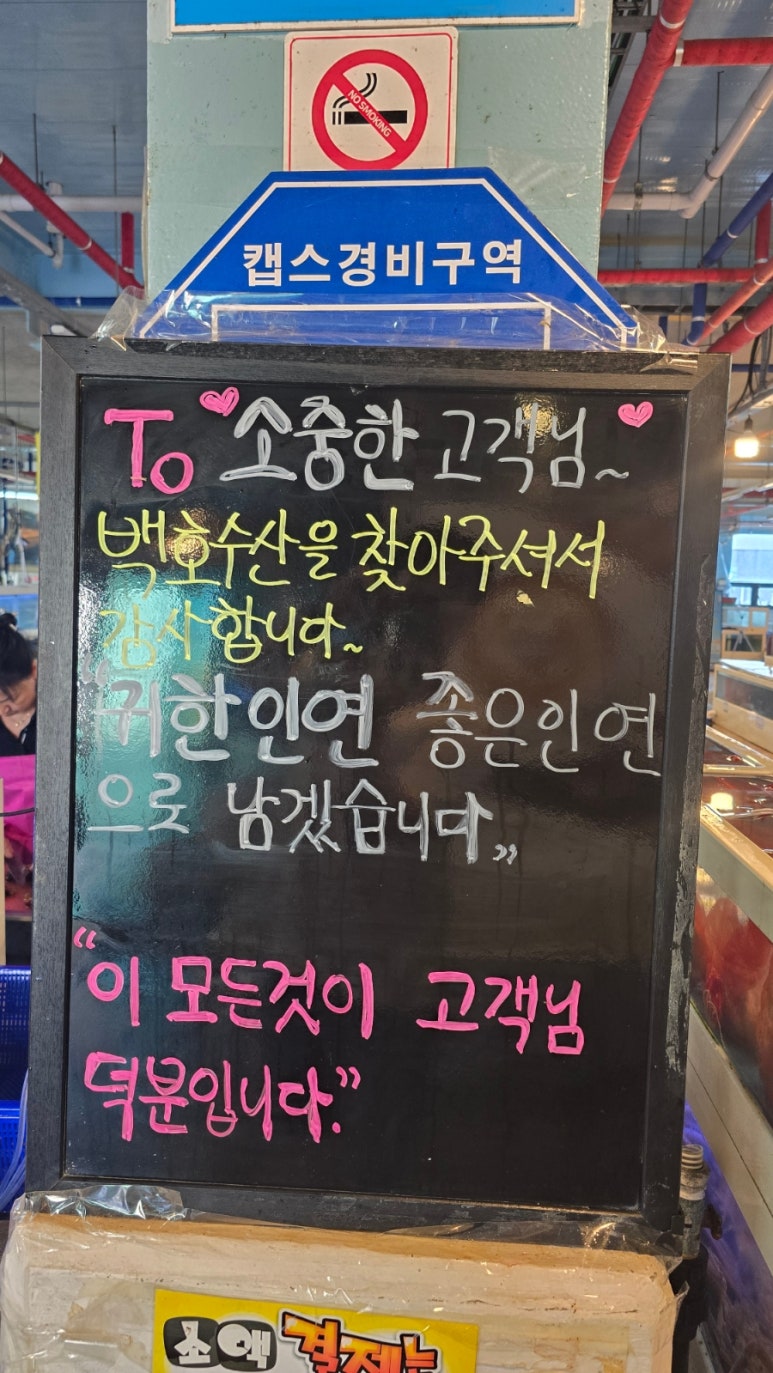 NO SMOKING
캡스경비구역
To 소중한 고객님~
백호수산을 찾아주셔서
감사합니다~
"귀한인연 좋은인연
으로 남겠습니다"
"이 모든것이 고객님
덕분입니다."
소액 결제는